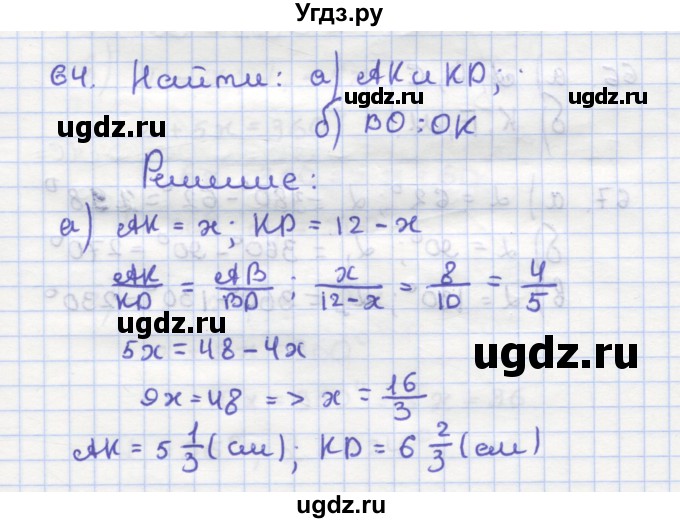 Угдз.ру
64. Найти: а) AK и KD;
ugdz.ru ugdz.ru
б) BO : OK
ugdz.ru
Решение:
а) AK = x; KD = 12 - x
ugdz.ru
AK/KD = AB/BD ; x/(12-x) = 8/10 = 4/5
ugdz.ru
5x = 48 - 4x
ugdz.ru
9x = 48 => x = 16/3
ugdz.ru
AK = 5 1/3 (см); KD = 6 2/3 (см)
ugdz.ru ugdz.ru
ugdz.ru